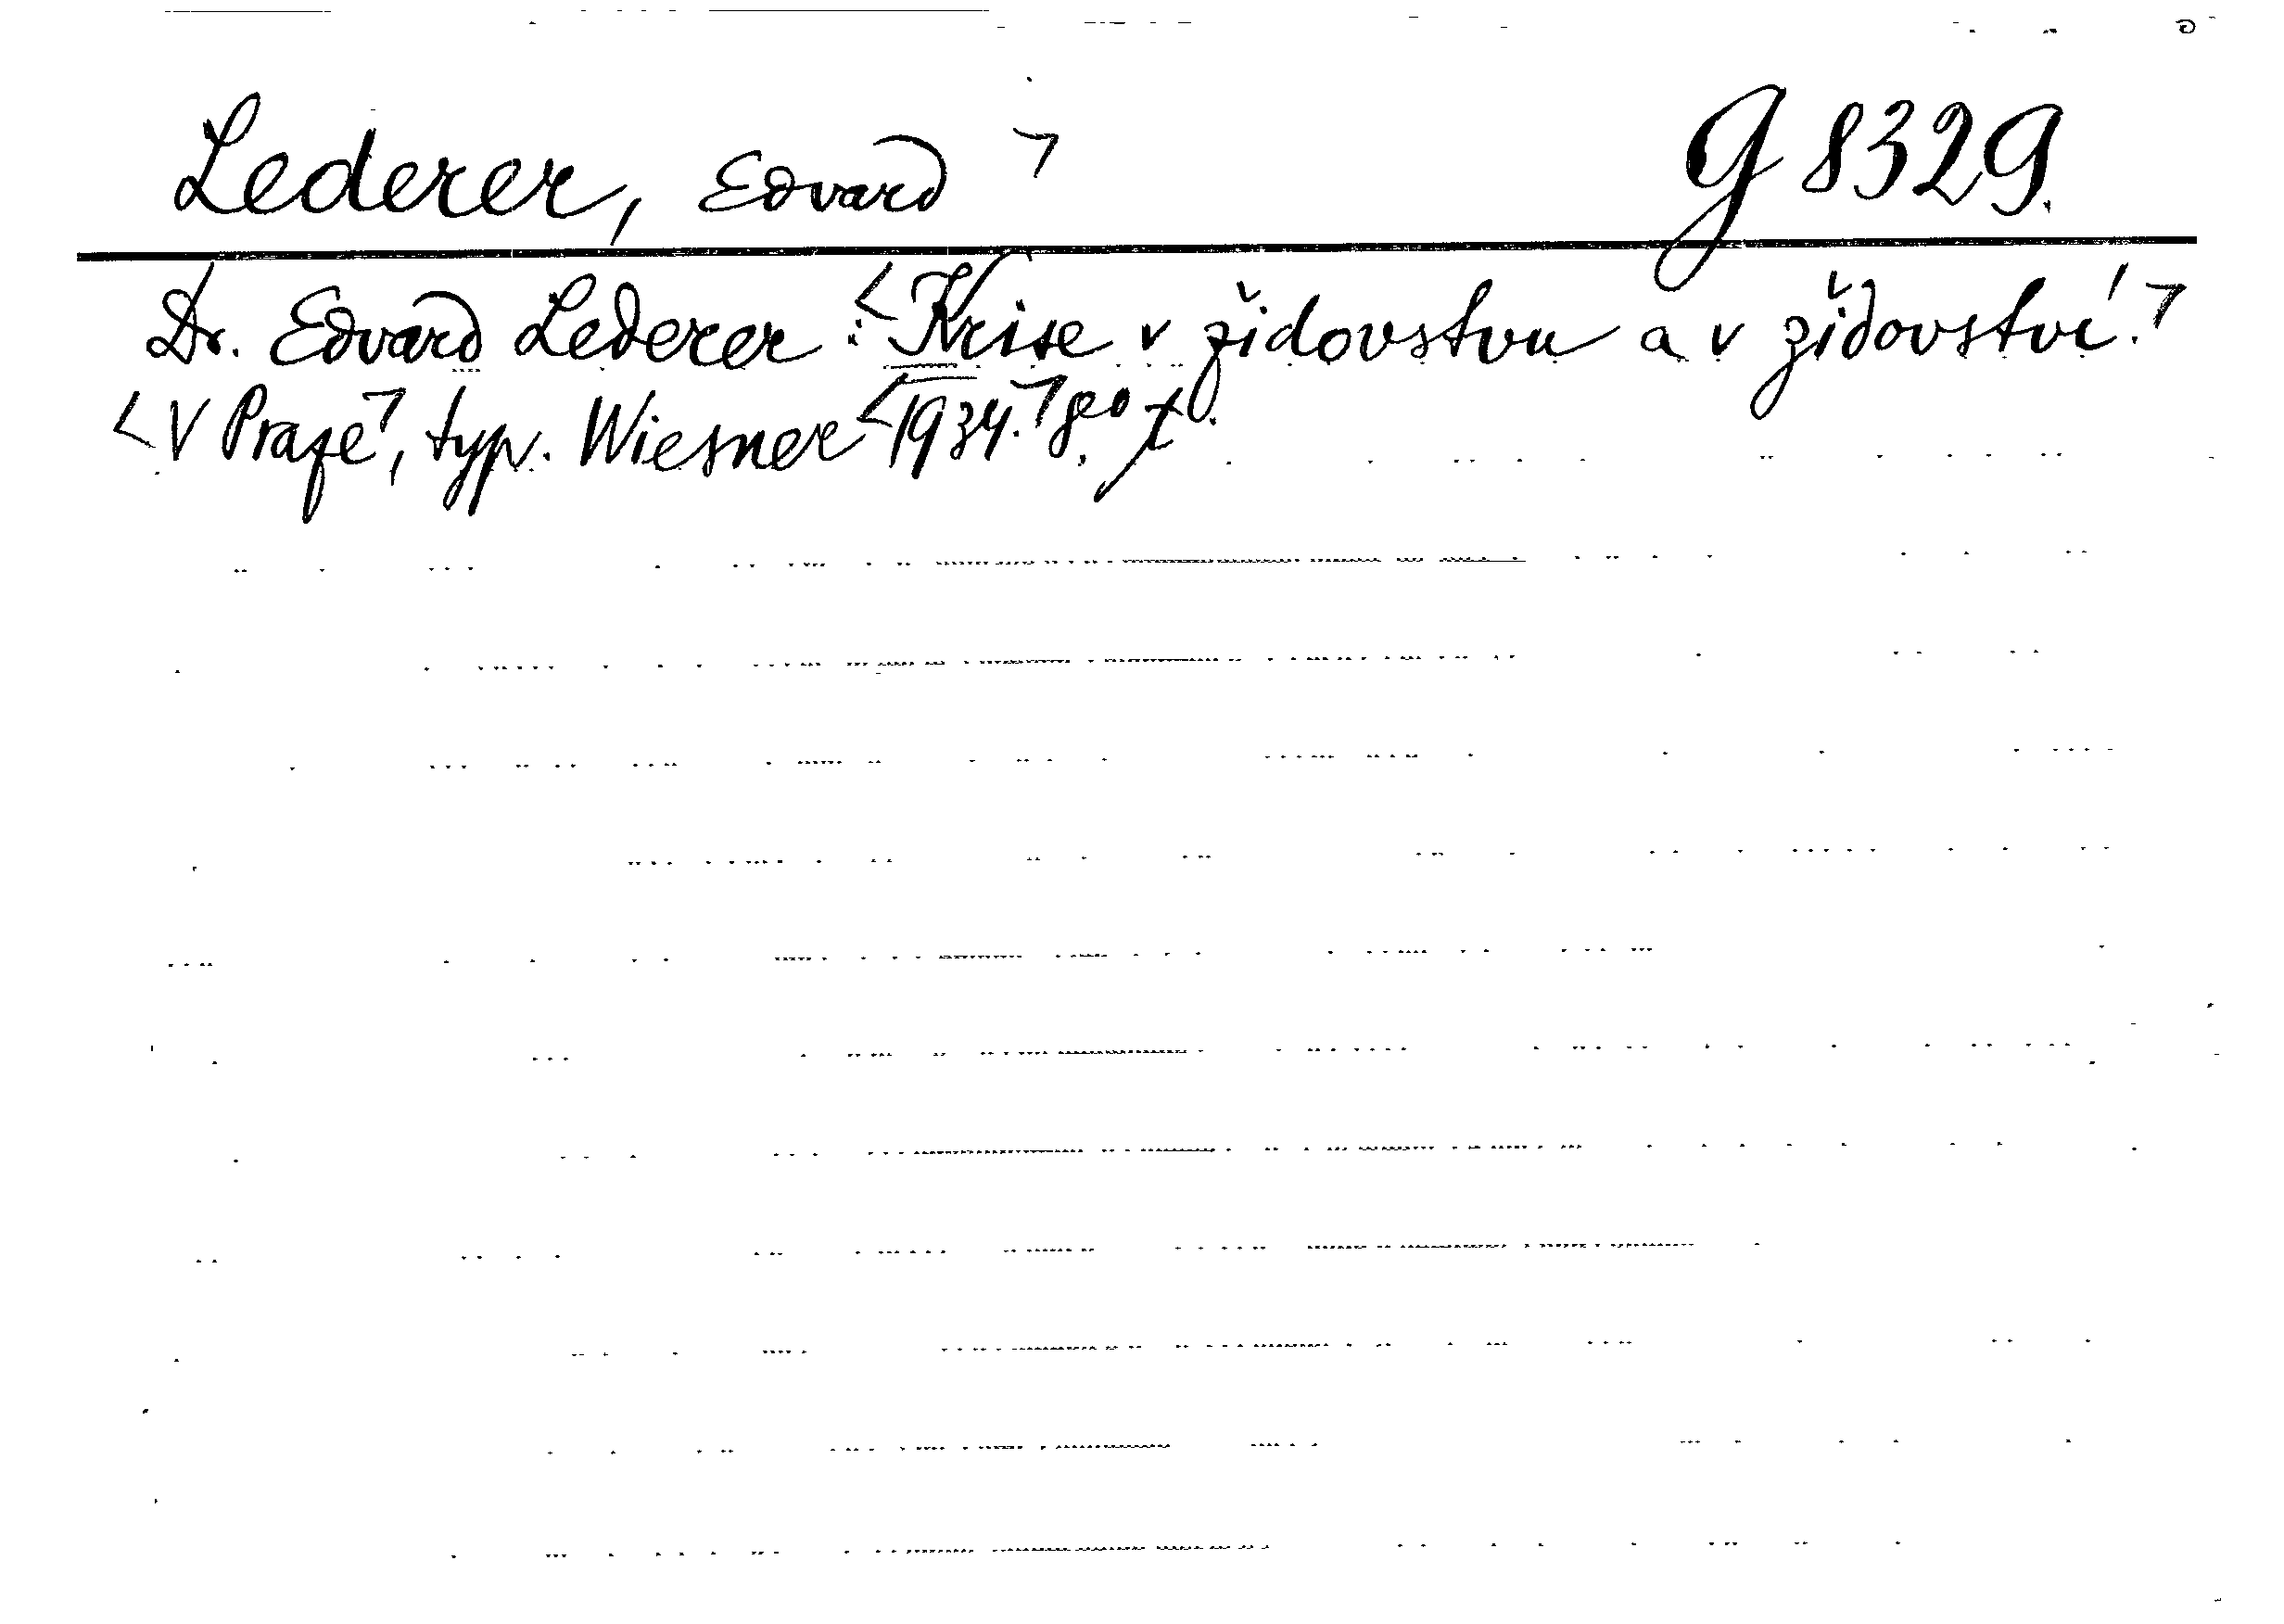 Lederer, Edvard ⌝ G 8329.
Dr. Edvard Lederer: <Krise v židovstvu a v židovství.⌝
<V Praze⌝, typ. Wiesner <1934.⌝ 8°